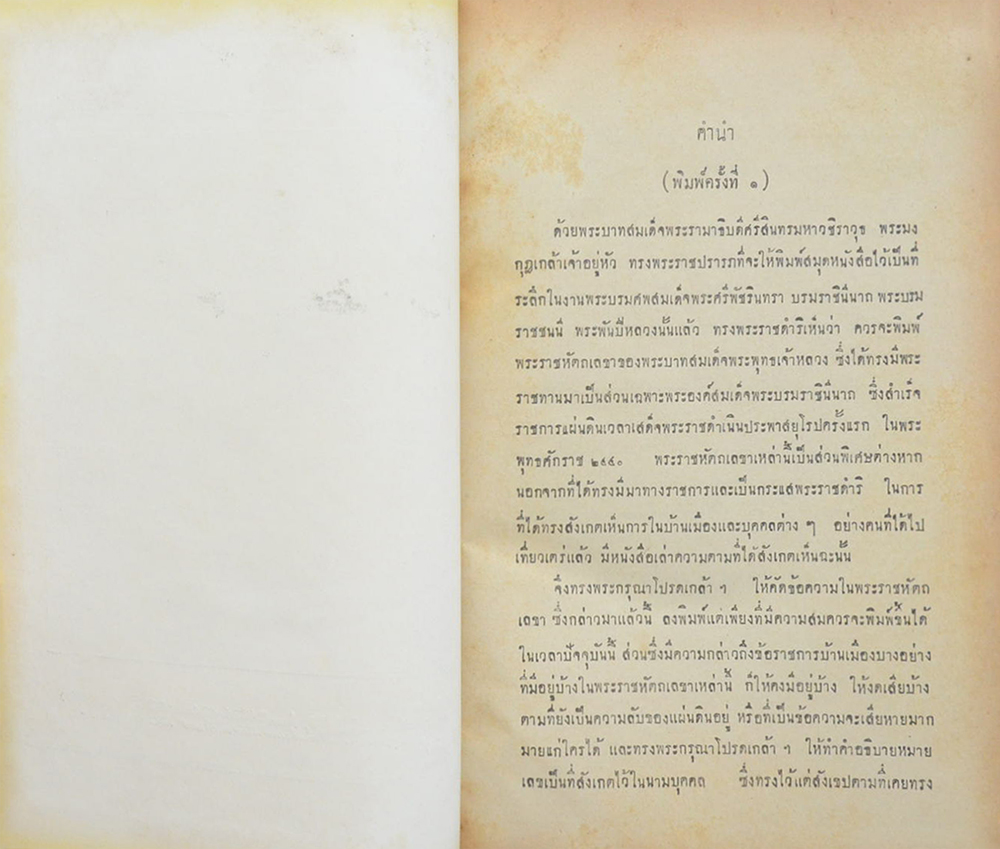 คำนำ
(พิมพ์ครั้งที่ ๑)
ด้วยพระบาทสมเด็จพระรามาธิบดีศรีสินทรมหาวชิราวุธ พระมง
กุฎเกล้าเจ้าอยู่หัว ทรงพระราชปรารภที่จะให้พิมพ์สมุดหนังสือไว้เป็นที่
ระลึกในงานพระบรมศพสมเด็จพระศรีพัชรินทรา บรมราชินีนาถ พระบรม
ราชชนนี พระพันปีหลวงนั้นแล้ว ทรงพระราชดำริเห็นว่า ควรจะพิมพ์
พระราชหัตถเลขาของพระบาทสมเด็จพระพุทธเจ้าหลวง ซึ่งได้ทรงมีพระ
ราชทานมาเป็นส่วนเฉพาะพระองค์สมเด็จพระบรมราชินีนาถ ซึ่งสำเร็จ
ราชการแผ่นดินเวลาเสด็จพระราชดำเนินประพาสยุโรปครั้งแรก ในพระ
พุทธศักราช ๒๔๔๐ พระราชหัตถเลขาเหล่านี้เป็นส่วนพิเศษต่างหาก
นอกจากที่ได้ทรงมีมาทางราชการและเป็นกระแสพระราชดำริ ในการ
ที่ได้ทรงสังเกตเห็นการในบ้านเมืองและบุคคลต่าง ๆ อย่างคนที่ได้ไป
เที่ยวเตร่แล้ว มีหนังสือเล่าความตามที่ได้สังเกตเห็นฉะนั้น
จึงทรงพระกรุณาโปรดเกล้า ฯ ให้คัดข้อความในพระราชหัตถ
เลขา ซึ่งกล่าวมาแล้วนี้ ลงพิมพ์แต่เพียงที่มีความสมควรจะพิมพ์ขึ้นได้
ในเวลาปัจจุบันนี้ ส่วนซึ่งมีความกล่าวถึงข้อราชการบ้านเมืองบางอย่าง
ที่มีอยู่บ้างในพระราชหัตถเลขาเหล่านี้ ก็ให้คงมีอยู่บ้าง ให้งดเสียบ้าง
ตามที่ยังเป็นความลับของแผ่นดินอยู่ หรือที่เป็นข้อความจะเสียหายมาก
มายแก่ใครได้ และทรงพระกรุณาโปรดเกล้า ฯ ให้ทำคำอธิบายหมาย
เลขเป็นที่สังเกตไว้ในนามบุคคล ซึ่งทรงไว้แต่สังเขปตามที่เคยทรง